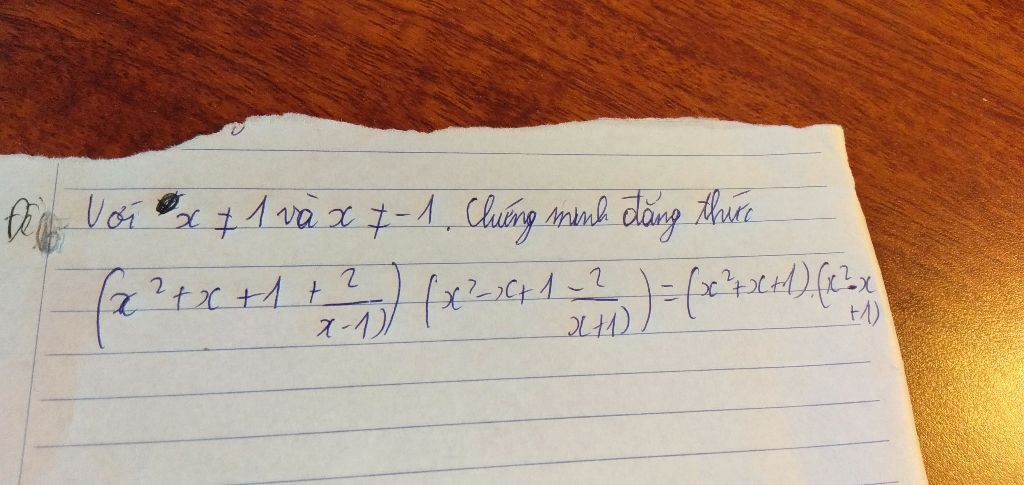 Đề Với x ≠ 1 và x ≠ -1. Chứng minh đẳng thức
(x² + x + 1 + 2/(x-1)) (x² - x + 1 - 2/(x+1)) = (x² + x + 1).(x² - x + 1)